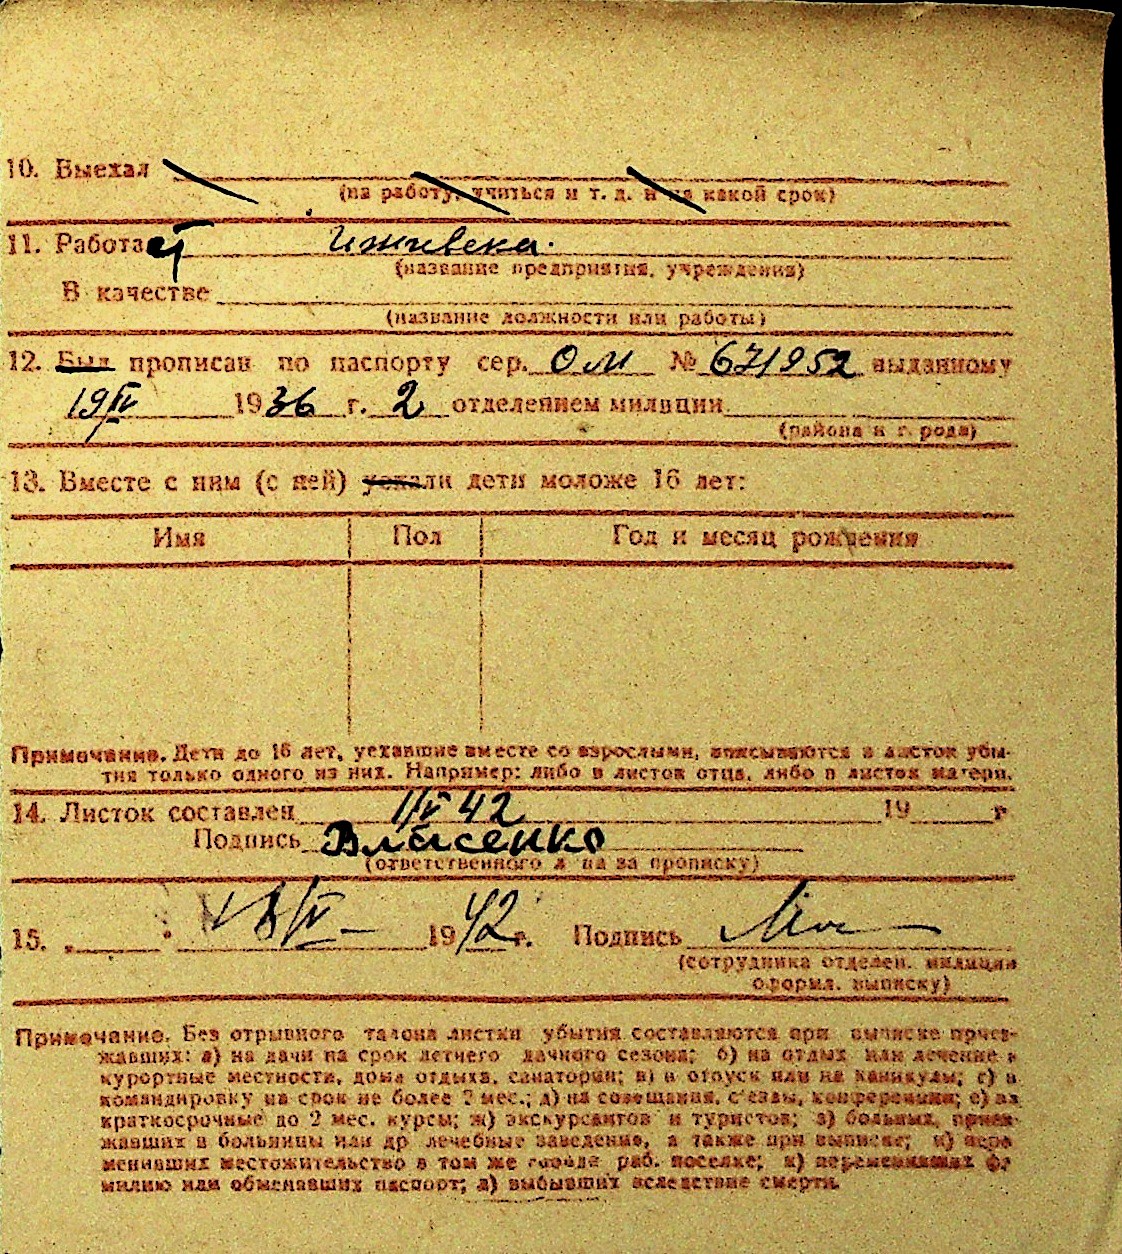 10. Выехал
(на работу, учиться и т. д. и на какой срок)
11. Работает Иждивенка.
(название предприятия, учреждения)
В качестве
(название должности или работы)
12. Был прописан по паспорту сер. ОМ № 671952 выданному
19/IV 1936 г. 2 отделением милиции
(района и г. рода)
13. Вместе с ним (с ней) уехали дети моложе 16 лет:
Имя Пол Год и месяц рождения
Примечание. Дети до 16 лет, уехавшие вместе со взрослыми, вписываются в листок убы-
тия только одного из них. Например: либо в листок отца, либо в листок матери.
14. Листок составлен 1/V 42 19 г
Подпись Власенко
(ответственного л ца за прописку)
15. „ “ 1942 г. Подпись
(сотрудника отделен. милиции
оформл. выписку)
Примечание. Без отрывного талона листки убытия составляются при выписке приез-
жавших: а) на дачи на срок летнего дачного сезона; б) на отдых или лечение в
курортные местности, дома отдыха, санатории; в) в отпуск или на каникулы; г) в
командировку на срок не более 2 мес.; д) на совещания, с'езды, конференции; е) на
краткосрочные до 2 мес. курсы; ж) экскурсантов и туристов; з) больных, приез-
жавших в больницы или др лечебные заведения, а также при выписке; и) пере
менивших местожительство в том же городе раб. поселке; к) переменивших фа
милию или обменявших паспорт; л) выбывших вследствие смерти.